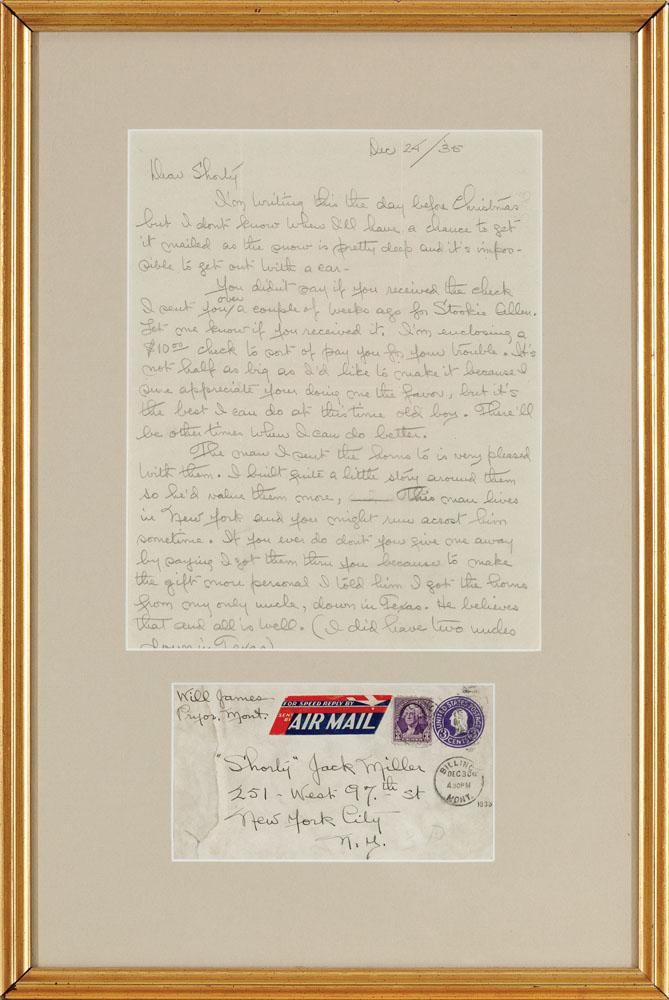 Dec 24/'35
Dear Shorty
I'm writing this the day before Christmas
but I dont know when I'll have a chance to get
it mailed as the snow is pretty deep and it's impos-
sible to get out with a car-
You didn't say if you received the check
I sent you over a couple of weeks ago for Stookie Allen.
Let me know if you received it. I'm enclosing a
$10.00 check to sort of pay you for your trouble. It's
not half as big as I'd like to make it because I
sure appreciate your doing me the favor, but it's
the best I can do at this time old boy. There'll
be other times when I can do better.
The man I sent the horns to is very pleased
with them. I built quite a little story around them
so he'd value them more, This man lives
in New York and you might run acrost him
sometime. If you ever do dont you give me away
by saying I got them thru you because to make
the gift more personal I told him I got the horns
from my only uncle, down in Texas. He believes
that and all is well. (I did have two uncles
down in Texas)
Will James
Pryor, Mont.
FOR SPEED REPLY BY
SENT BY AIR MAIL
UNITED STATES POSTAGE
3 CENTS 3
BILLINGS
DEC 30
4 30 PM
MONT.
1935
"Shorty" Jack Miller
251 - West 97th St
New York City
N.Y.